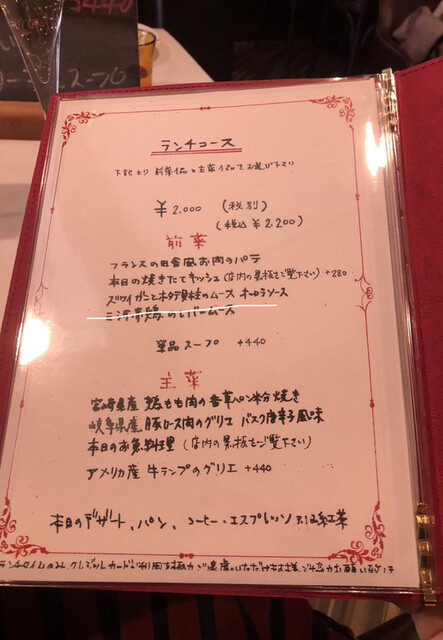 3440
スープ
ランチコース
下記より 前菜1品と主菜1品でお選び下さい
¥2.000 (税別)
(税込 ¥2,200)
前菜
フランスの田舎風お肉のパテ
本日の焼きたてキッシュ(店内の黒板をご覧下さい) +280
ズワイガニとホタテ貝柱のムース オーロラソース
のレバームース
単品スープ +440
主菜
宮崎県産 鶏もも肉の香草パン粉焼き
岐阜県産 豚ロース肉のグリエ バスク唐辛子風味
本日のお魚料理 (店内の黒板をご覧下さい)
アメリカ産 牛ランプのグリエ +440
本日のデザート、パン、コーヒー・エスプレッソ又は紅茶
ランチタイムのみ、クレジットカードの利用を極力ご遠慮いただけます様ご協力お願い致します